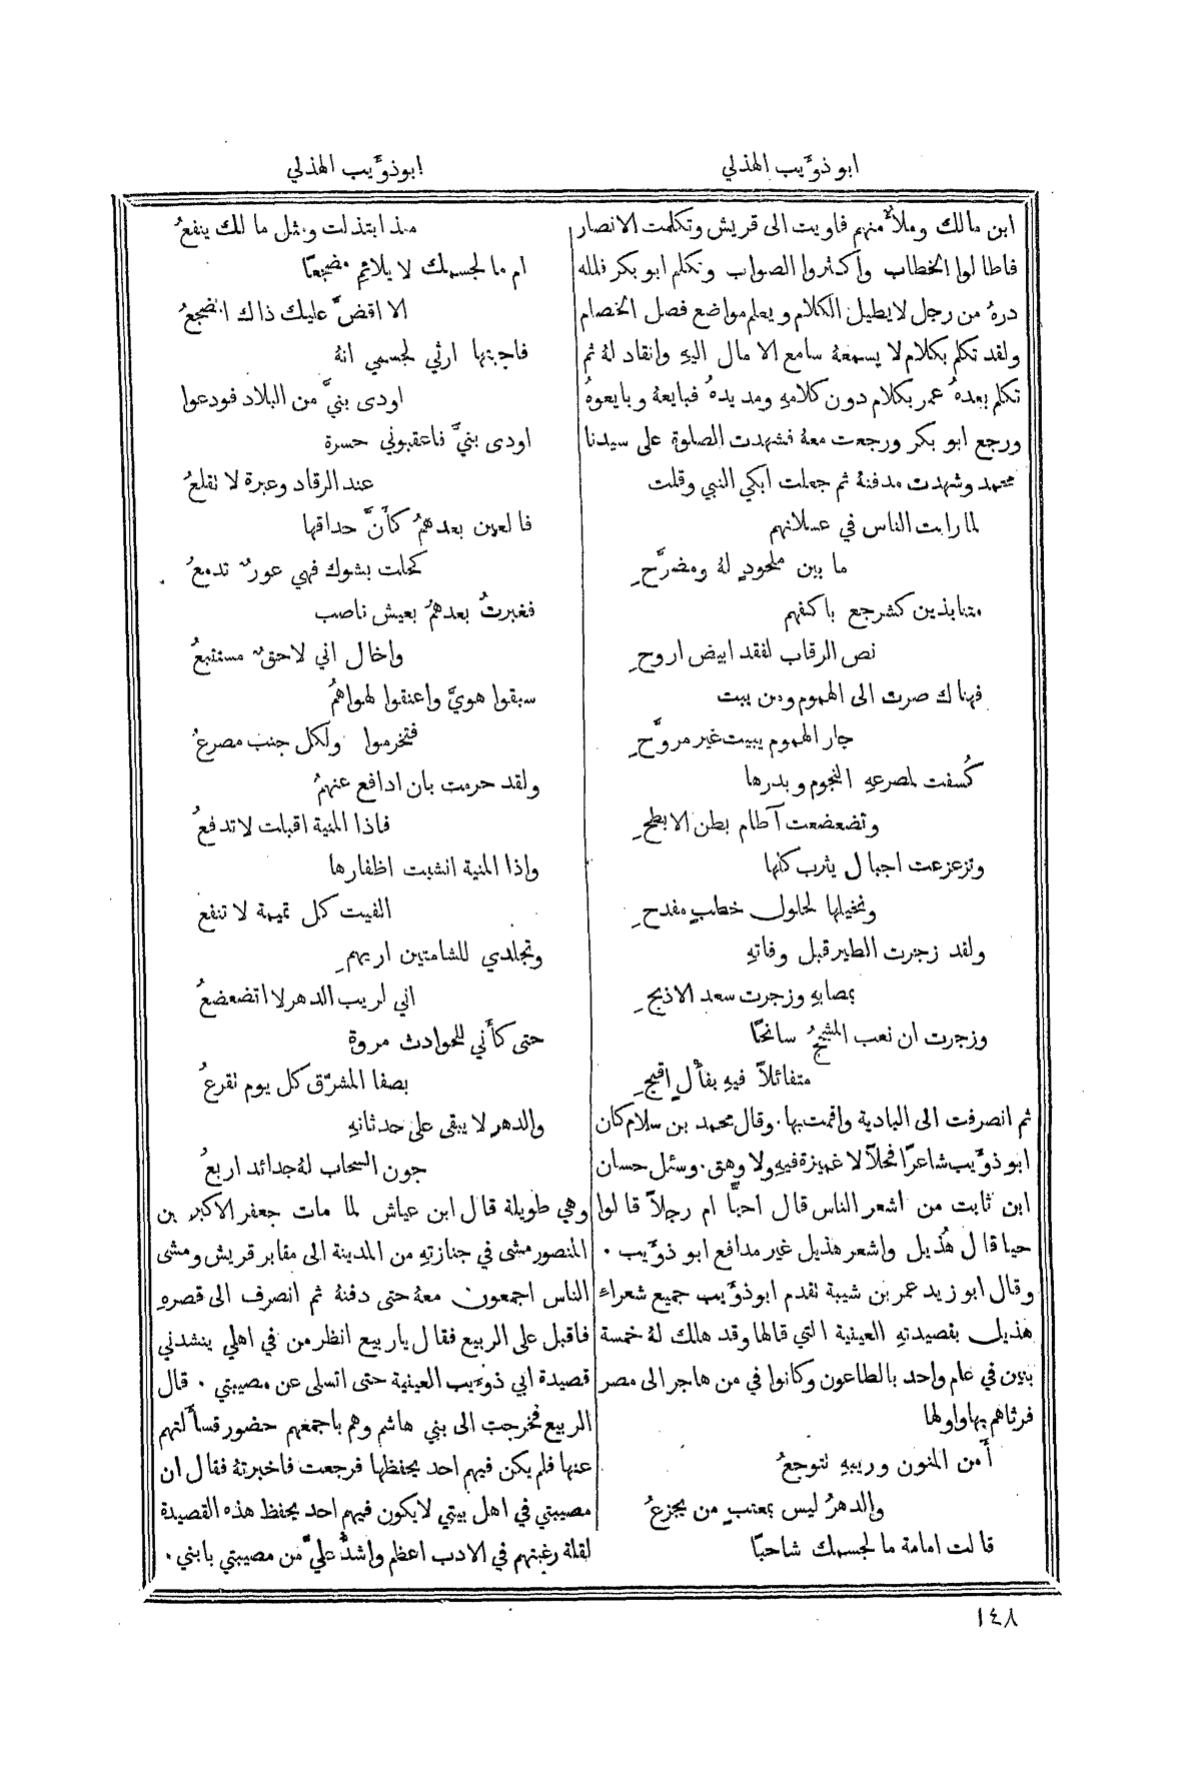 ابو ذوَّيب الهذلي
ابن مالك وملأ منهم فاويت الى قريش وتكلمت الانصار
فاطالوا الخطاب واكثروا الصواب وتكلم ابو بكر فلله
درهُ من رجل لا يطيل الكلام ويعلم مواضع فصل الخصام
ولقد تكلم بكلام لا يسمعهُ سامع الا مال اليهِ وانقاد لهُ ثم
تكلم بعدهُ عمر بكلام دون كلامهِ ومد يدهُ فبايعهُ وبايعوهُ
ورجع ابو بكر ورجعت معهُ فشهدت الصلوة على سيدنا
محمد وشهدت مدفنهُ ثم جعلت ابكي النبي وقلت
لما رايت الناس في عسلانهم
ما بين ملحودٍ لهُ ومضرَّحِ
متنابذين كشرجع باكفهم
نص الرقاب لفقد ابيض اروحِ
فهناك صرت الى الهموم ومن يبت
جار الهموم يبيت غير مروَّحِ
كُسفت لمصرعهِ النجوم وبدرها
وتضعضعت آطام بطن الابطحِ
وتزعزعت اجبال يثرب كلها
ونخيلها لحلول خطبٍ مفدحِ
ولقد زجرت الطير قبل وفاتهِ
بمصابهِ وزجرت سعد الاذبحِ
وزجرت ان نعب المشحّجُ سانحًا
متفائلاً فيهِ بفألٍ اقبحِ
ثم انصرفت الى البادية واقمت بها. وقال محمد بن سلام كان
ابو ذوَّيب شاعرًا فحلاً لا غميزة فيهِ ولا وهق. وسئل حسان
ابن ثابت من اشعر الناس قال احبًّا ام رجلاً قالوا
حيا قال هُذيل واشعر هذيل غير مدافع ابو ذوَّيب.
وقال ابو زيد عمر بن شيبة تقدم ابو ذوَّيب جميع شعراء
هذيل بقصيدتهِ العينية التي قالها وقد هلك لهُ خمسة
بنين في عام واحد بالطاعون وكانوا في من هاجر الى مصر
فرثاهم بها واولها
أَمن المنون وريبهِ تتوجعُ
والدهرُ ليس بمعتبٍ من يجزعُ
قالت امامة ما لجسمك شاحبًا
ابو ذوَّيب الهذلي
منذ ابتذلت ومثل مالك ينفعُ
ام ما لجسمك لا يلائم مضجعًا
الا اقضَّ عليك ذاك المضجعُ
فاجبتها ارثي لجسمي انهُ
اودى بنيَّ من البلاد فودعوا
اودى بنيَّ فاعقبوني حسرة
عند الرقاد وعبرة لا تقلعُ
فالعين بعدهمُ كأَنَّ حداقها
كحلت بشوك فهي عورٌ تدمعُ
فغبرتُ بعدهمُ بعيش ناصب
واخال اني لاحقٌ مستتبعُ
سبقوا هويَّ واعنقوا لهواهمُ
فتخرموا ولكل جنب مصرعُ
ولقد حرمت بان ادافع عنهمُ
فاذا المنية اقبلت لا تدفعُ
واذا المنية انشبت اظفارها
الفيت كل تميمة لا تنفع
وتجلدي للشامتين اريهمِ
اني لريب الدهر لا اتضعضعُ
حتى كأَني للحوادث مروة
بصفا المشرّق كل يوم تقرعُ
والدهر لا يبقى على حدثانهِ
جون السحاب لهُ جدائد اربعُ
وهي طويلة قال ابن عياش لما مات جعفر الاكبر بن
المنصور مشى في جنازتهِ من المدينة الى مقابر قريش ومشى
الناس اجمعون معهُ حتى دفنهُ ثم انصرف الى قصرهِ
فاقبل على الربيع فقال يا ربيع انظر من في اهلي ينشدني
قصيدة ابي ذوَّيب العينية حتى اتسلى عن مصيبتي. قال
الربيع فخرجت الى بني هاشم وهم باجمعهم حضور فسأَلتهم
عنها فلم يكن فيهم احد يحفظها فرجعت فاخبرتهُ فقال ان
مصيبتي في اهل بيتي لا يكون فيهم احد يحفظ هذه القصيدة
لقلة رغبتهم في الادب اعظم واشدُّ عليَّ من مصيبتي بابني.
١٤٨